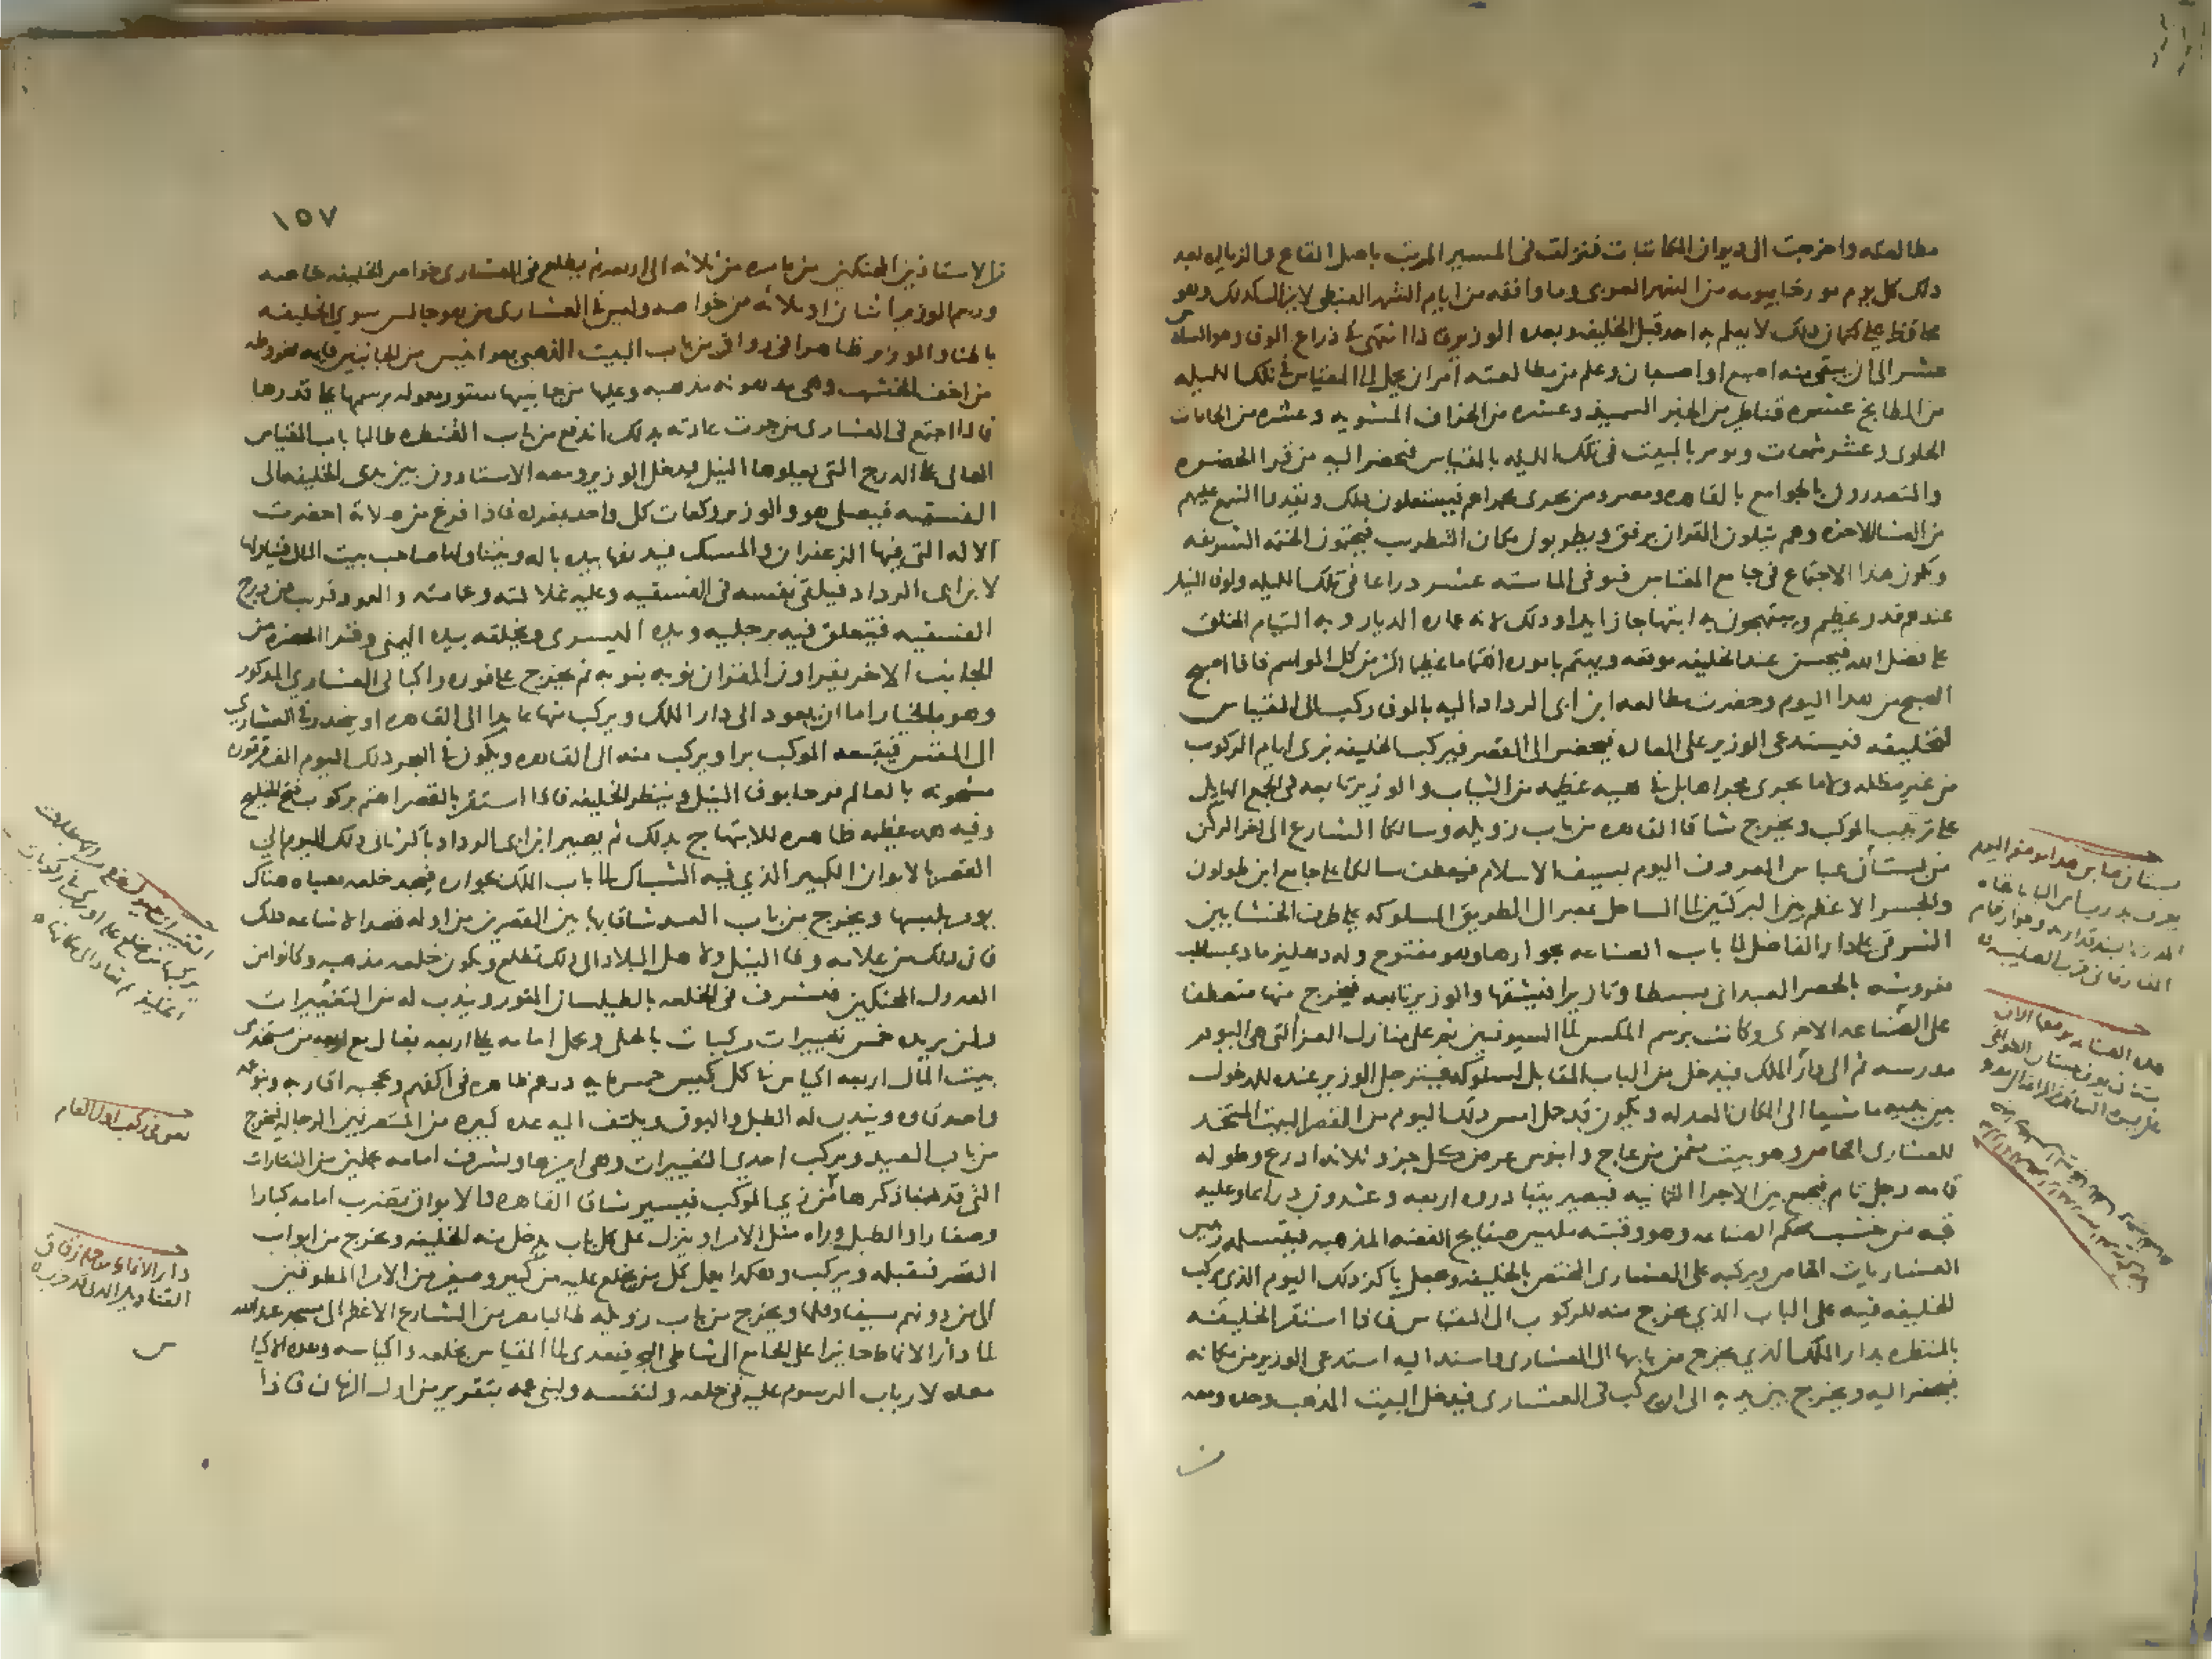 مطالعته واخرجت الى ديوان المكاتبات فنزلت فى المسير المرتب باصل القاع والزياده بعد
ذلك كل يوم مورخا بيومه من الشهر العربى وما وافقه من ايام الشهر القبطى لا يزال كذلك وهو
محافظ على كتمان ذلك لا يعلم به احد قبل الخليفه وبعده الوزير فاذا انتهى فى ذراع الوفا وهو السادس
عشر الى ان يبقى منه اصبع او اصبعان وعلم من مطالعته امر ان يحمل الى المقياس فى تلك الليله
من المطابخ عشره قناطير من الخبز السميد وعشره من الخراف المشويه وعشره من الجامات
الحلوى وعشر شمعات ويومر بالمبيت فى تلك الليله بالمقياس فيحضر اليه من قرا الحضره
والمتصدرون بالجوامع بالقاهره ومصر ومن يجرى مجراهم فيستعملون ذلك ويقدوا الشمع عليهم
من العشا الاخره وهم يتلون القران برفق ويطربون بمكان التطريب فيختمون الختمه الشريفه
ويكون هذا الاجتماع فى جامع المقياس فيوفى الما ستة عشر ذراعا فى تلك الليله ولوفا النيل
عندهم قدر عظيم ويبتهجون به ابتهاجا زايدا وذلك لانه عماره الديار وبه التيام الخلق
على فضل الله فيحسن عند الخليفه موقعه ويهتم بامره اهتماما عظيما اكثر من كل المواسم فاذا اصبح
الصبح من هذا اليوم وحضرت مطالعه ابن ابى الرداد اليه بالوفا ركب الى المقياس
لتخليقه فيستدعى الوزير على العاده فيحضر الى القصر فيركب الخليفه بزى ايام الركوب
من غير مظله ولا ما يجرى مجراها بل فى هيبه عظيمه من الثياب والوزير تابعه فى الجمع الهايل
على ترتيب الموكب ويخرج شاقا القاهره من باب زويله وسالكا الشارع الى اخر الركن
من بستان عباس المعروف اليوم بسيف الاسلام فيعطف سالكا على جامع ابن طولون
والجسر الاعظم بين البركتين الى الساحل بمصر الى الطريق المسلوكه على طرف الخشابين
الشرقى على دار الفاضل الى باب الصناعه بجوارها وهو مفتوح وله دهليز ماد بمساطب
مفروشه بالحصر العبدانى بسطا وتازيرا فيشقها والوزير تابعه فيخرج منها منعطفا
على الصناعه الاخرى وكانت برسم المكس الى السيوفيين ثم على منازل العز التى هى اليوم
مدرسه ثم الى دار الملك فيدخل من الباب المقابل لسلوكه فيترجل الوزير عنده للدخول
بين يديه ماشيا الى المكان المعد له ويكون قد حمل امس ذلك اليوم من القصر البيت المتخذ
للعشارى الخاص وهو بيت مثمن من عاج وابنوس عرض كل جزو ثلاثه اذرع وطوله
قامه رجل تام فيجمع بين الاجزا الثمانيه فيصير بيتا دوره اربعه وعشرون ذراعا وعليه
قبه من خشب محكم الصناعه وهو وقبته ملبس صفايح الفضه المذهبه فيتسلمه رييس
العشاريات الخاص ويركبه على العشارى المختص بالخليفه ويجعل باكر ذلك اليوم الذى يركب
الخليفه فيه على الباب الذى يخرج منه للركوب الى المقياس فاذا استقر الخليفه
بالمنظره بدار الملك الذى يخرج من بابها الى العشارى واسند اليه استدعى الوزير من مكانه
فيحضر اليه ويخرج بين يديه الى ان يركب فى العشارى فيدخل البيت المذهب وحده ومعه
من
١٥٧
من الاستاذين المحنكين من يامره من ثلاثه الى اربعه ثم يطلع فى العشارى خواص الخليفه خاصه
ورسم الوزير اثنان او ثلاثه من خواصه وليس فى العشارى من هو جالس سوى الخليفه
باطنا والوزير ظاهرا فى رواق من باب البيت الذهبى
من اخف الخشب وهى مدهونه مذهبه وعليها من جانبيها ستور معموله برسمها على قدرها
فاذا اجتمع فى العشارى من جرت عادته بذلك اندفع من باب القنطره طالبا باب المقياس
العالى على الدرج التى يعلوها النيل فيدخل الوزير ومعه الاستاذون بين يدى الخليفه الى
الفسقيه فيصلى هو والوزير ركعات كل واحد بمفرده فاذا فرغ من صلاته احضرت
الاله التى فيها الزعفران والمسك فيديفها بيده باله ويتناولها صاحب بيت المال فيناولها
لابن ابى الرداد فيلقى نفسه فى الفسقيه وعليه غلالته وعمامته والعمود قريب من درج
الفسقيه فيتعلق فيه برجليه ويده اليسرى ويخلقه بيده اليمنى وقرا الحضره من
الجانب الاخر يقراون القران نوبه بنوبه ثم يخرج على فوره راكبا فى العشارى المذكور
وهو بالخيار اما ان يعود الى دار الملك ويركب منها عايدا الى القاهره او ينحدر فى العشارى
الى المقس فيتبعه الموكب برا ويركب منه الى القاهره ويكون فى البحر ذلك اليوم الف قرقوره
مشحونه بالعالم فرحا بوفا النيل وبنظر الخليفه فاذا استقر بالقصر اهتم بركوب فتح الخليج
وفيه همه عظيمه ظاهره للابتهاج بذلك ثم يصير ابن ابى الرداد باكر ثانى ذلك اليوم الى
القصر بالايوان الكبير الذى فيه الشباك الى باب الملك بجواره فيجد خلعه معباه هناك
يومر بلبسها ويخرج من باب العيد شاقا بها بين القصرين من اوله قصدا لاشاعه ذلك
فان ذلك من علامه وفا النيل ولاهل البلاد الى ذلك تطلع ويكون خلعه مذهبه وكان من
العدول المحنكين فيشرف فى الخلعه بالطيلسان المقور ويندب له من التغييرات
ولمن يريده خمس تغييرات مركبات بالحلى ويحمل امامه على اربعه بغال مع اربعه من مستخدمى
بيت المال اربعه اكياس فى كل كيس خمس مايه درهم ظاهره فى اكفهم وبصحبته اقاربه وبنو عمه
واصدقاوه ويندب له الطبل والبوق ويلتف اليه عده كثيره من المتصرفين الرجاله فيخرج
من باب العيد ويركب احدى التغييرات وهى اميزها وشرف امامه بجملين من النقارات
التى قدمنا ذكرها فى زى الموكب فيسير شاقا القاهره والابواق تضرب امامه كبارا
وصغارا والطبل وراه مثل الامرا وينزل على كل باب يدخل منه الخليفه ويخرج من ابواب
القصر فيقبله ويركب وهكذا يعمل كل من يخلع عليه من كبير وصغير من الامرا المطوقين
الى من دونهم سيفا وقلما ويخرج من باب زويله طالبا مصر من الشارع الاعظم الى مسجد عبد الله
الى دار الانماط جايزا على الجامع الى شاطى البحر فيعدى الى المقياس بخلعه واكياسه وهذه الاكياس
معده لارباب الرسوم عليه فى خلعه ولنفسه ولبنى عمه بتقرير من اول الزمان فاذا